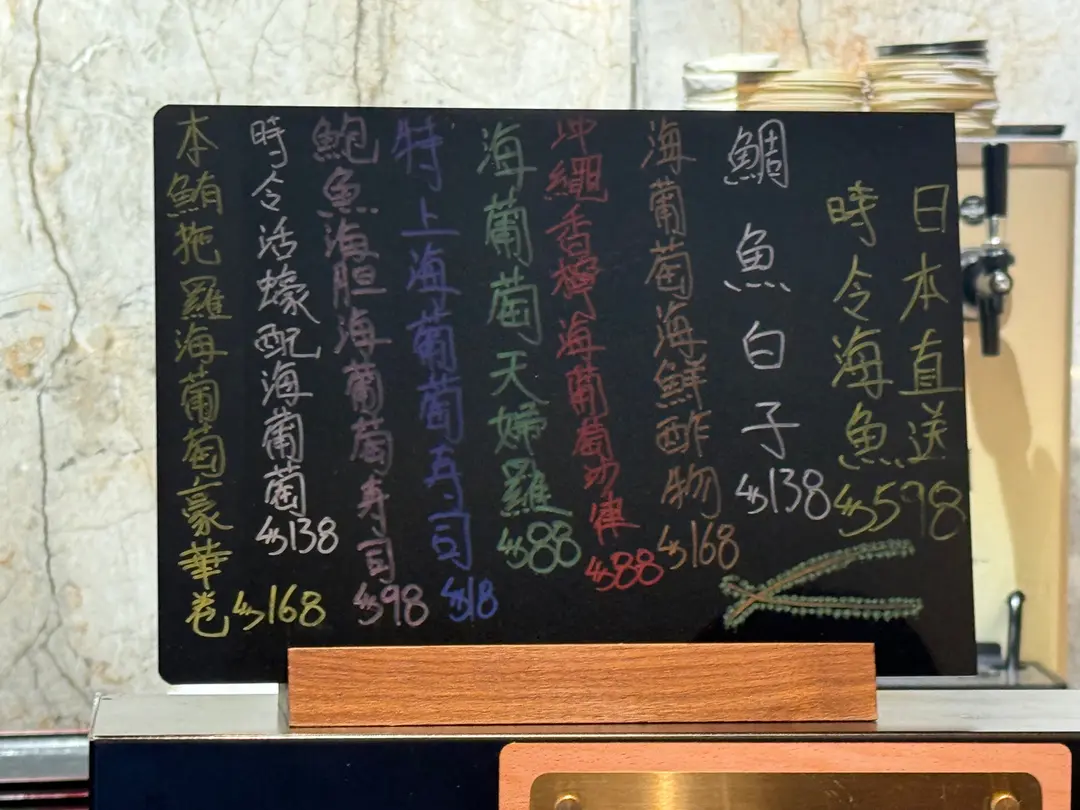 日本直送
時令海魚$598
鯛魚白子$138
海葡萄海鮮酢物$168
沖繩香檸海葡萄沙律$88
海葡萄天婦羅$88
特上海葡萄壽司$18
鮑魚海胆海葡萄寿司$98
時令活蠔配海葡萄$138
本鮪拖羅海葡萄豪華卷$168